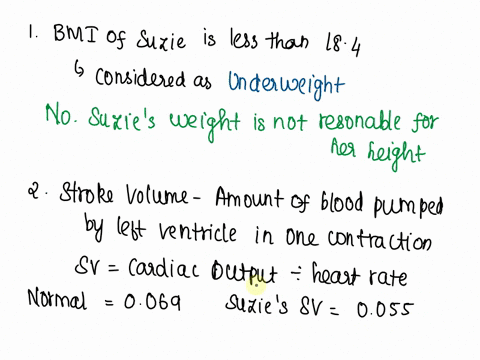 1. BMI of Suzie is less than 18.4
↳ considered as Underweight
No. Suzie's weight is not resonable for
her height
2. Stroke Volume - Amount of blood pumped
by left ventricle in one contraction
SV = Cardiac Output ÷ heart rate
Normal = 0.069 Suzie's SV = 0.055